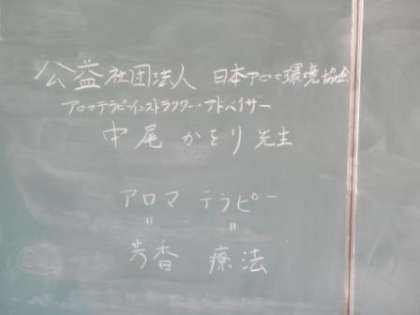 公益社団法人 日本アロマ環境協会
アロマテラピーインストラクター・アドバイザー
中尾 かをり 先生
アロマ テラピー
〃 〃
芳香 療法